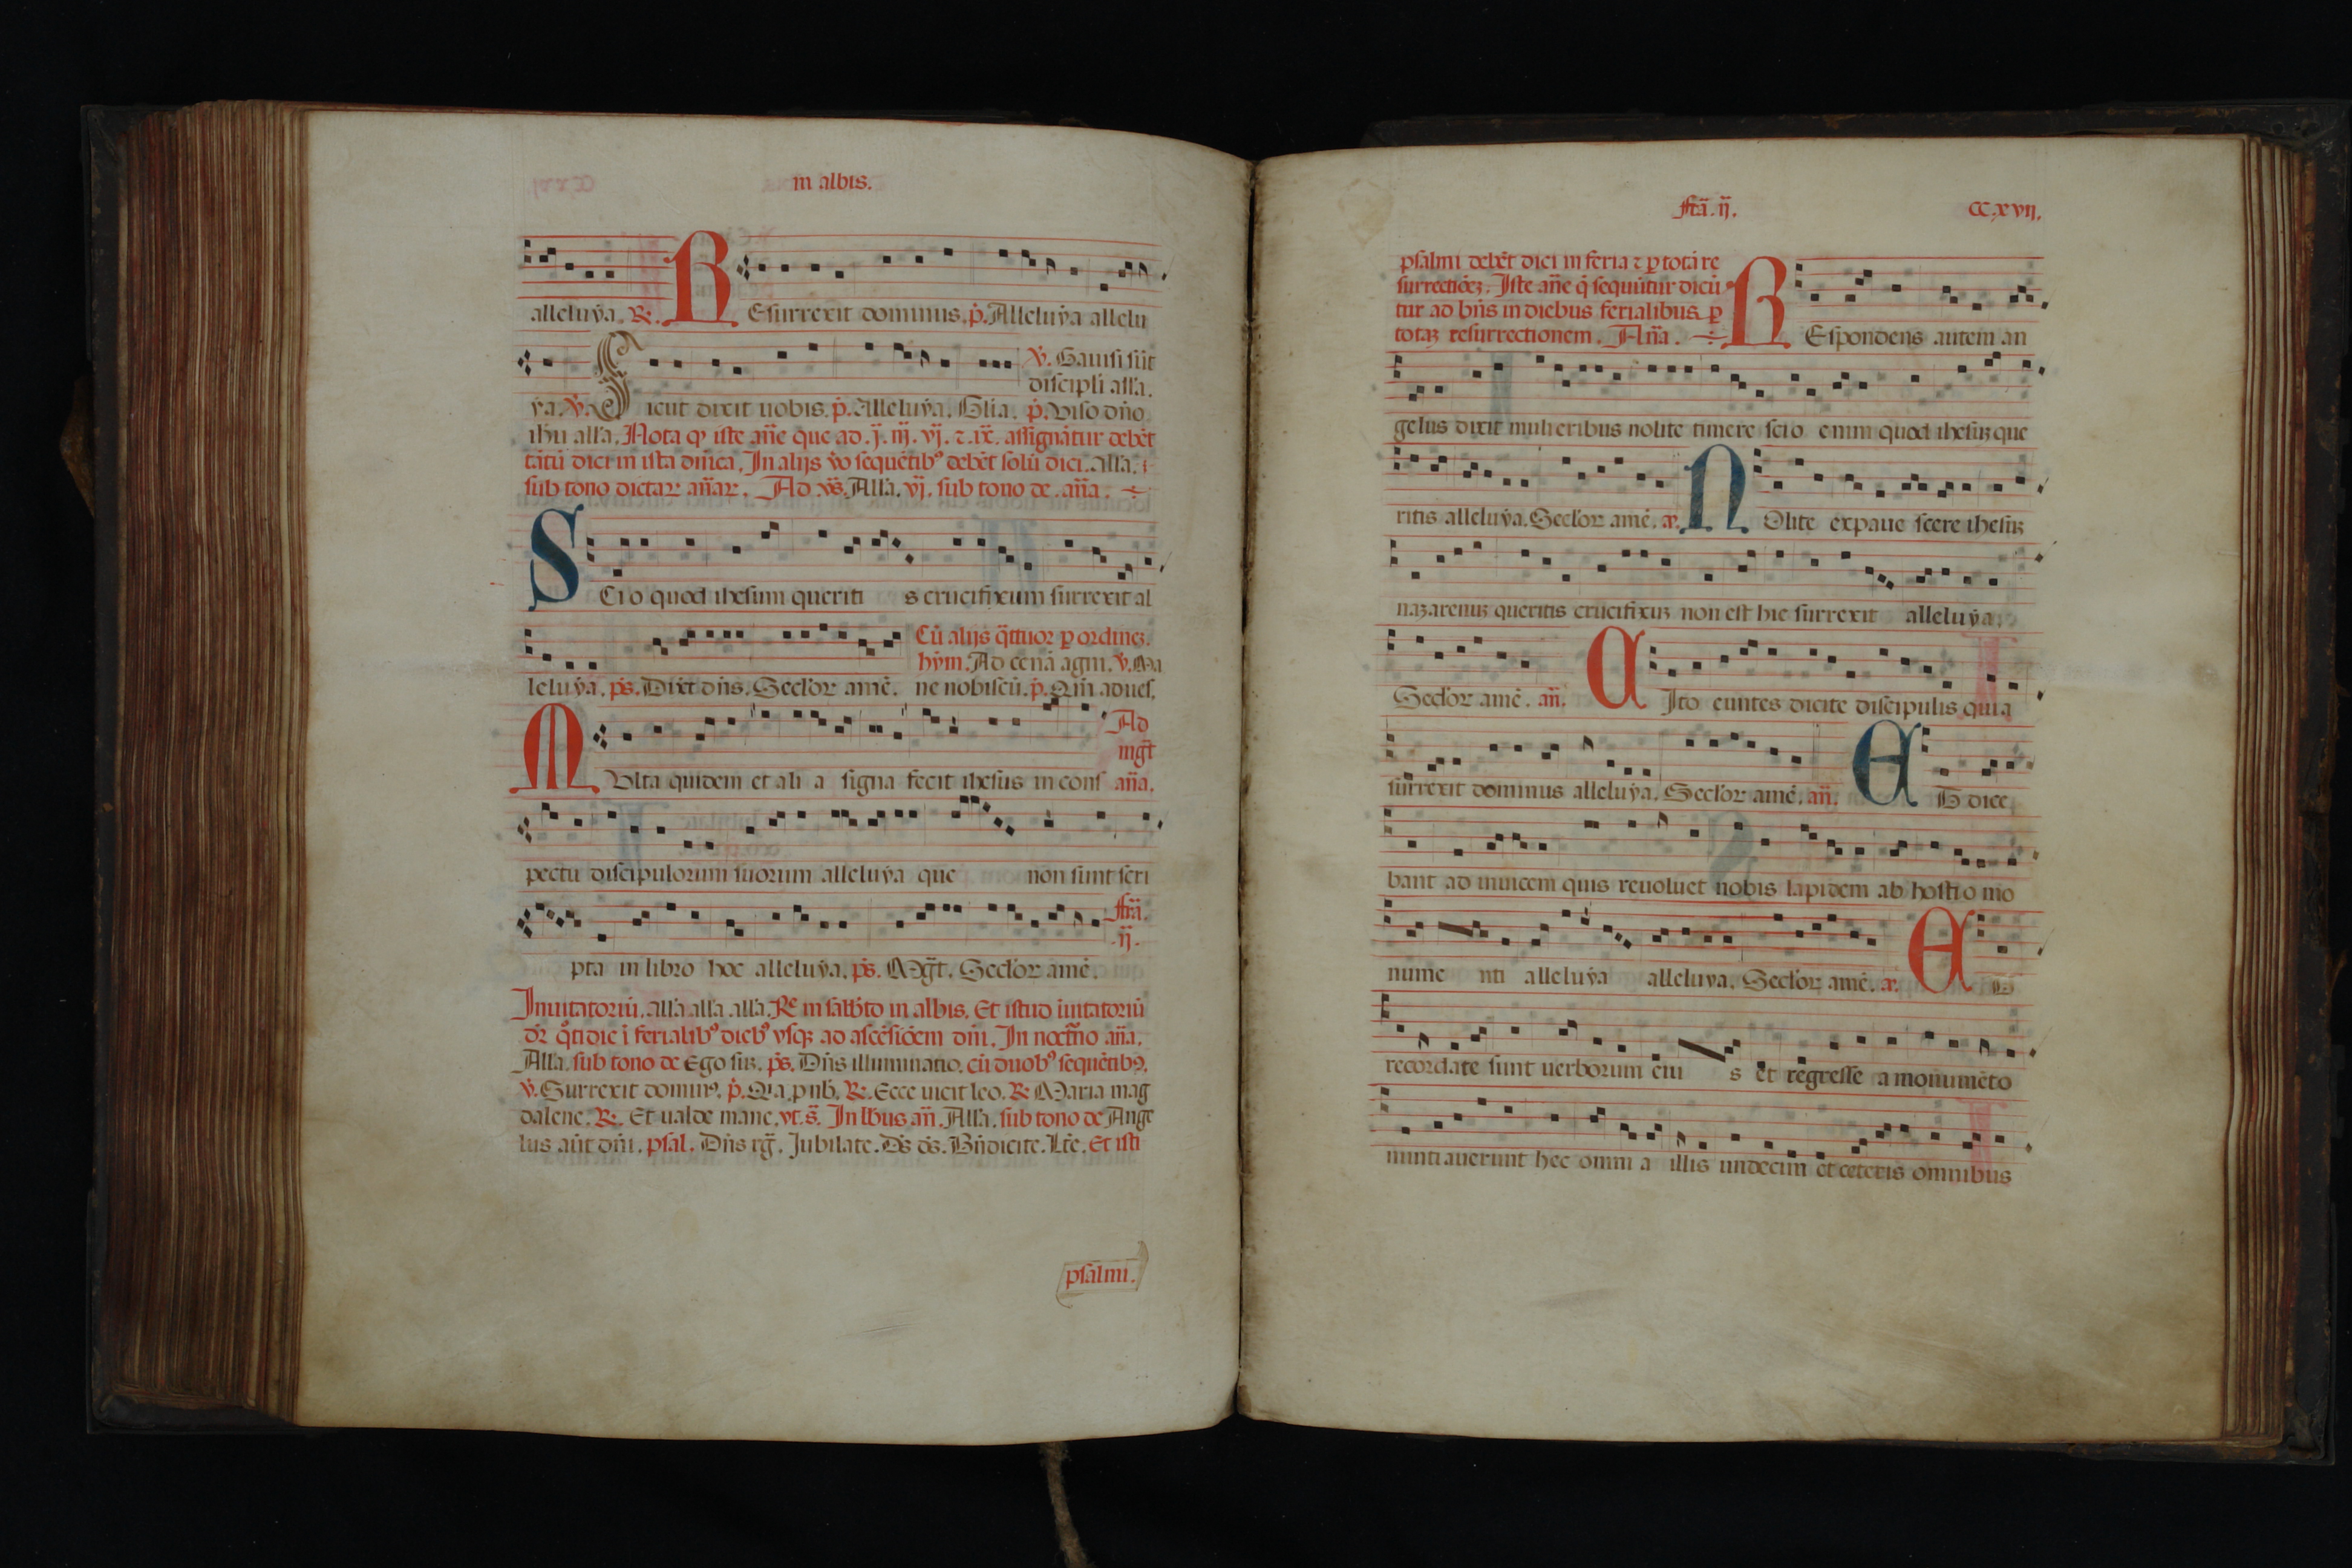 in albis.
alleluẏa. R. REsurrexit dominus. p̄. Alleluẏa allelu
v̄. Gauisi sūt
discipli all'a.
ẏa. v̄. Sicut dixit uobis. p̄. Alleluẏa. Gl'ia. p̄. Viso dn̄o
ihu all'a. Nota qꝫ iste an̄e que ad .j. iij. vj. ⁊ .ix. assignātur debēt
tātū dici in ista dn̄ica. In alijs v̄o sequētibꝰ debēt solū dici. all'a. i
sub tono dictaꝝ an̄aꝝ. Ad vs̄. All'a. vj. sub tono de .an̄a.
SCio quod ihesum queriti s crucifixum surrexit al
Cū alijs q̄ttuor ꝑ ordineꝫ.
hẏm. Ad cenā agni. v̄. Ma
leluẏa. ps̄. Dixt dn̄s. Secl'oꝝ amē. ne nobiscū. p̄. Qm̄ aduesˀ.
Ad
mgt̄
MVlta quidem et ali a signa fecit ihesus in consˀ an̄a.
pectu discipulorum suorum alleluẏa que non sunt scri
fr̄ia.
.ij.
pta in libro hoc alleluẏa. ps̄. Mgt̄. Secl'oꝝ amē.
Inuitatoriū. all'a all'a all'a. Re in sabb̄to in albis. Et istud ūitatoriū
dr̄ qͦtidie ī ferialibꝰ diebꝰ vsqꝫ ad ascēsiōem dn̄i. In noct̄no an̄a.
All'a. sub tono de Ego suꝫ. ps̄. Dn̄s illuminatio. cū duobꝰ sequētibꝰ.
v̄. Surrexit dominꝰ. p̄. Qa p nb̄. R. Ecce uicit leo. R Maria mag
dalene. R. Et ualde mane. vt. s̄. In lbus an̄. All'a. sub tono de Ange
lus aūt dn̄i. psal. Dn̄s rḡ. Jubilate. Ds̄ ds̄. Bn̄dicite. Lt̄e. Et isti
psalmi.
fr̄ia. ij. CC.xvij.
psalmi debēt dici in feria ⁊ ꝑ totā re
surrectiōeꝫ. Iste an̄e q̄ sequūtur dicū
tur ad bn̄s in diebus ferialibus ꝑ
totaꝫ resurrectionem. An̄a. REspondens autem an
gelus dixit mulieribus nolite timere scio enim quod ihesuꝫ que
ritis alleluẏa. Secl'oꝝ amē. an̄. NOlite expaue scere ihesuꝫ
nazarenuꝫ queritis crucifixuꝫ non est hic surrexit alleluẏa.
Secl'oꝝ amē. an̄. CIto euntes dicite discipulis quia
surrexit dominus alleluẏa. Secl'oꝝ amē. an̄. ET dice
bant ad inuicem quis reuoluet nobis lapidem ab hostio mo
nume nti alleluẏa alleluya. Secl'oꝝ amē. an̄. ET
recordate sunt uerborum eiu s et regresse a monumēto
nuntiauerunt hec omni a illis undecim et ceteris omnibus